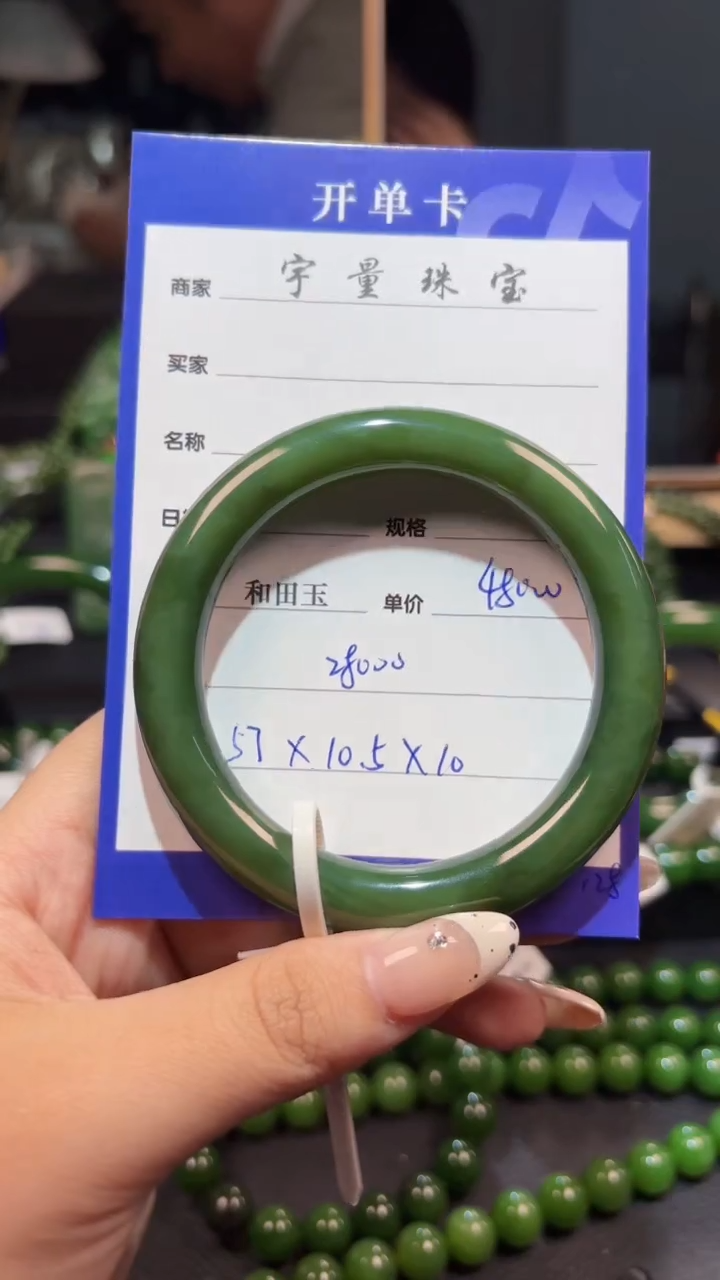 开单卡
商家 宇量珠宝
买家
名称
规格
和田玉 单价 48000
28000
57×10.5×10
128